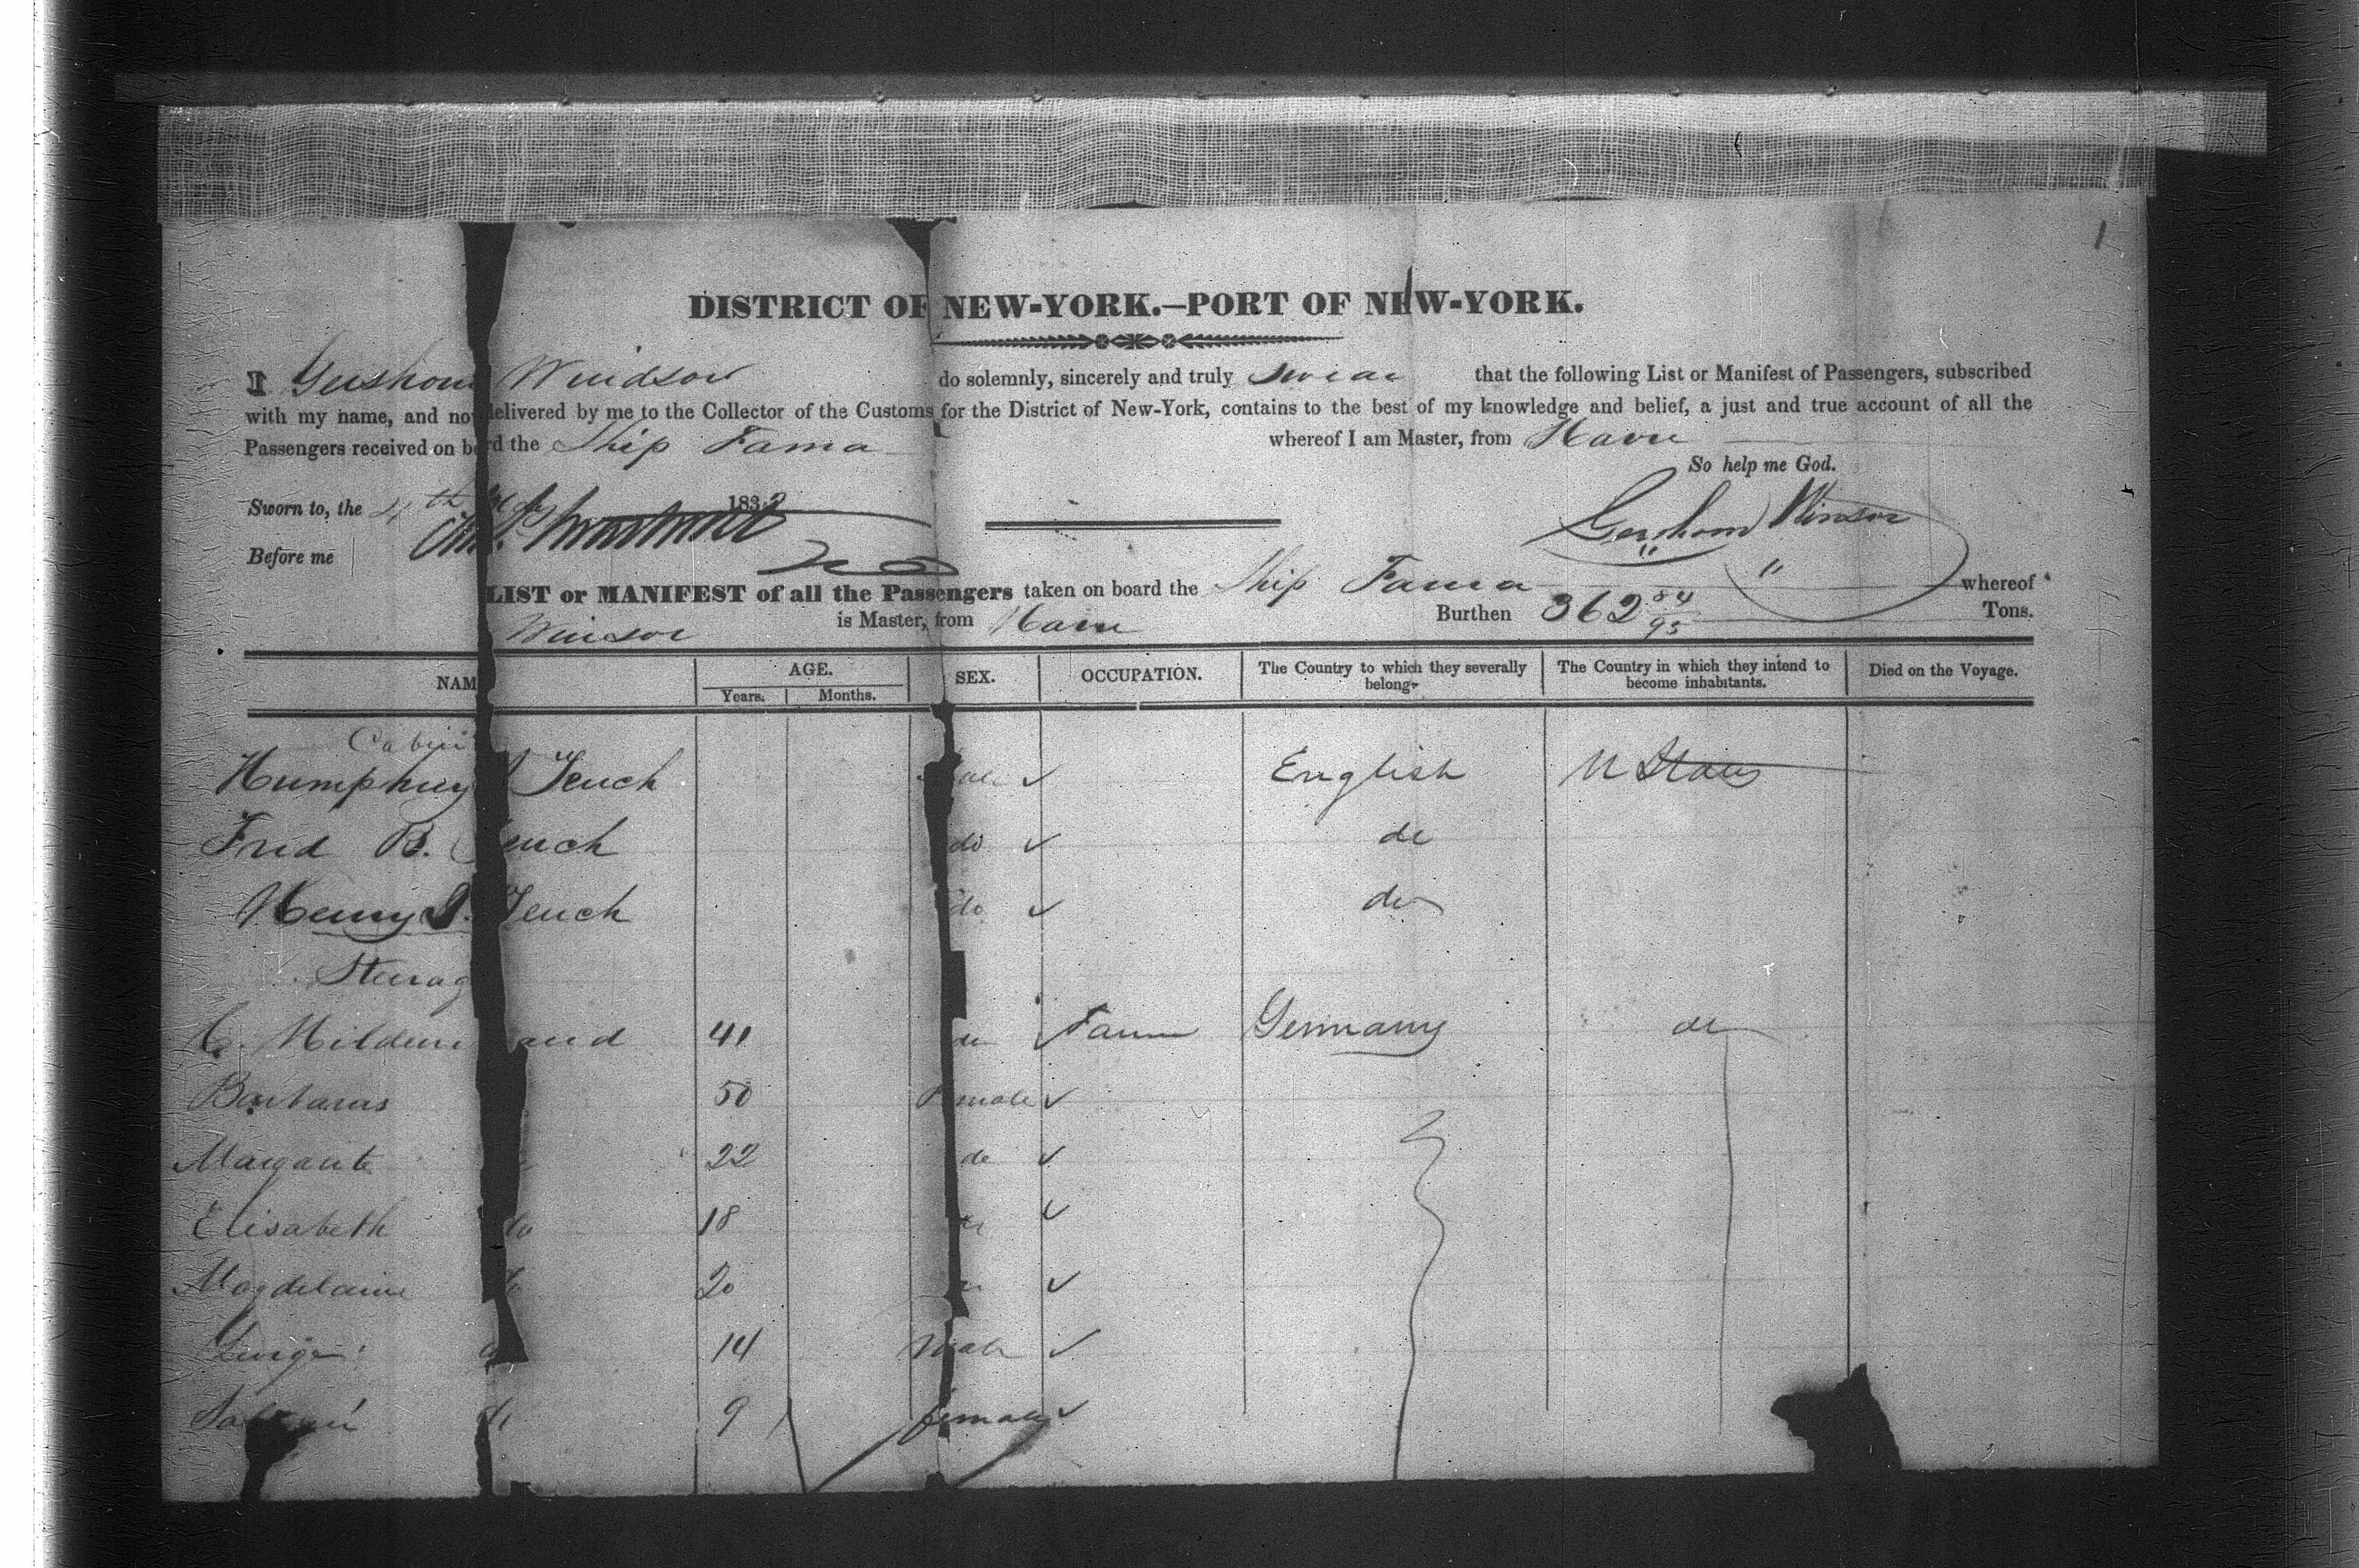 1
DISTRICT OF NEW-YORK.—PORT OF NEW-YORK.
I Gershom Windsor do solemnly, sincerely and truly swear that the following List or Manifest of Passengers, subscribed
with my name, and now delivered by me to the Collector of the Customs for the District of New-York, contains to the best of my knowledge and belief, a just and true account of all the
Passengers received on board the Ship Fama whereof I am Master, from Havre
So help me God.
Sworn to, the 4th 1832
Gershom Winsor
Before me
LIST or MANIFEST of all the Passengers taken on board the Ship Fama whereof
Winsor is Master, from Havre Burthen 362 84/95 Tons.
NAM AGE. SEX. OCCUPATION. The Country to which they severally belong. The Country in which they intend to become inhabitants. Died on the Voyage.
Years. Months.
Cabin
Humphrey Tench ale ✓ English U States
Fred B. Tench do ✓ do
Henry S. Tench do ✓ do
Steerag
C. and 41 ✓ Farmer Germany do
Barbaras 50 Female ✓
Margarite 22 do ✓
Elisabeth do 18 ✓
Magdelaine 20 ✓
14 Male ✓
9 female ✓